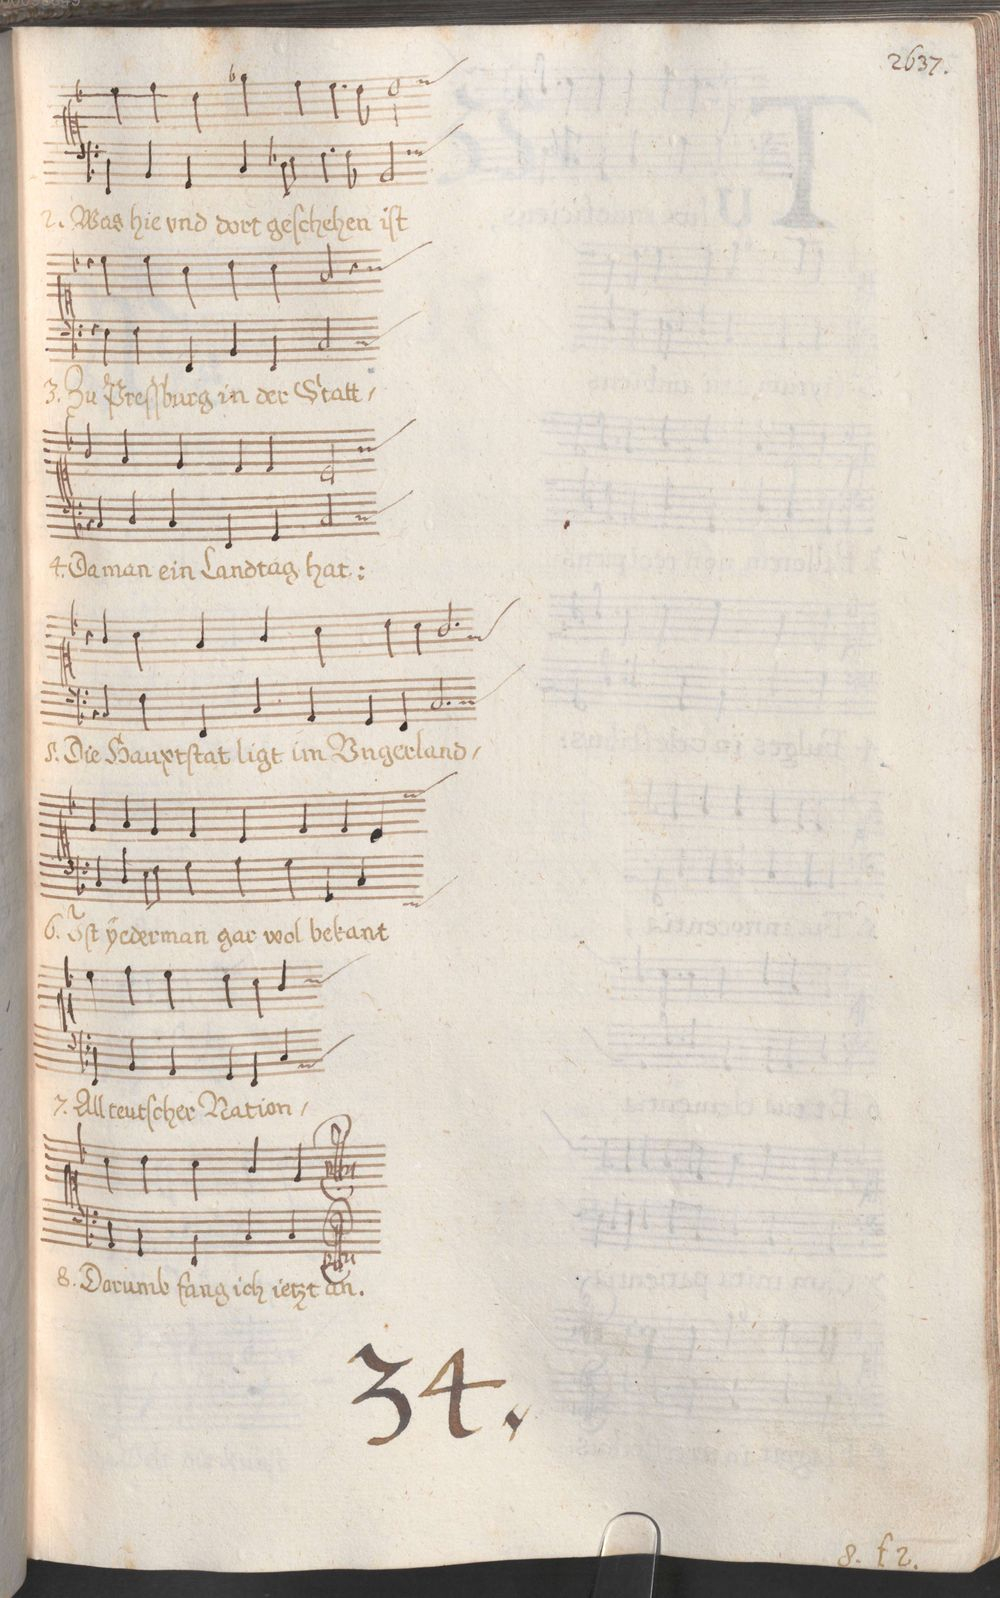 2637.
2. Was hie vnd dort geschehen ist
3. Zu Pressburg in der Statt /
4. Da man ein Landtag hat :
5. Die Hauptstat ligt im Vngerland /
6. Ist ÿederman gar wol bekant
7. All teutscher Nation /
8. Darumb fang ich ietzt an.
34.
8. f 2.